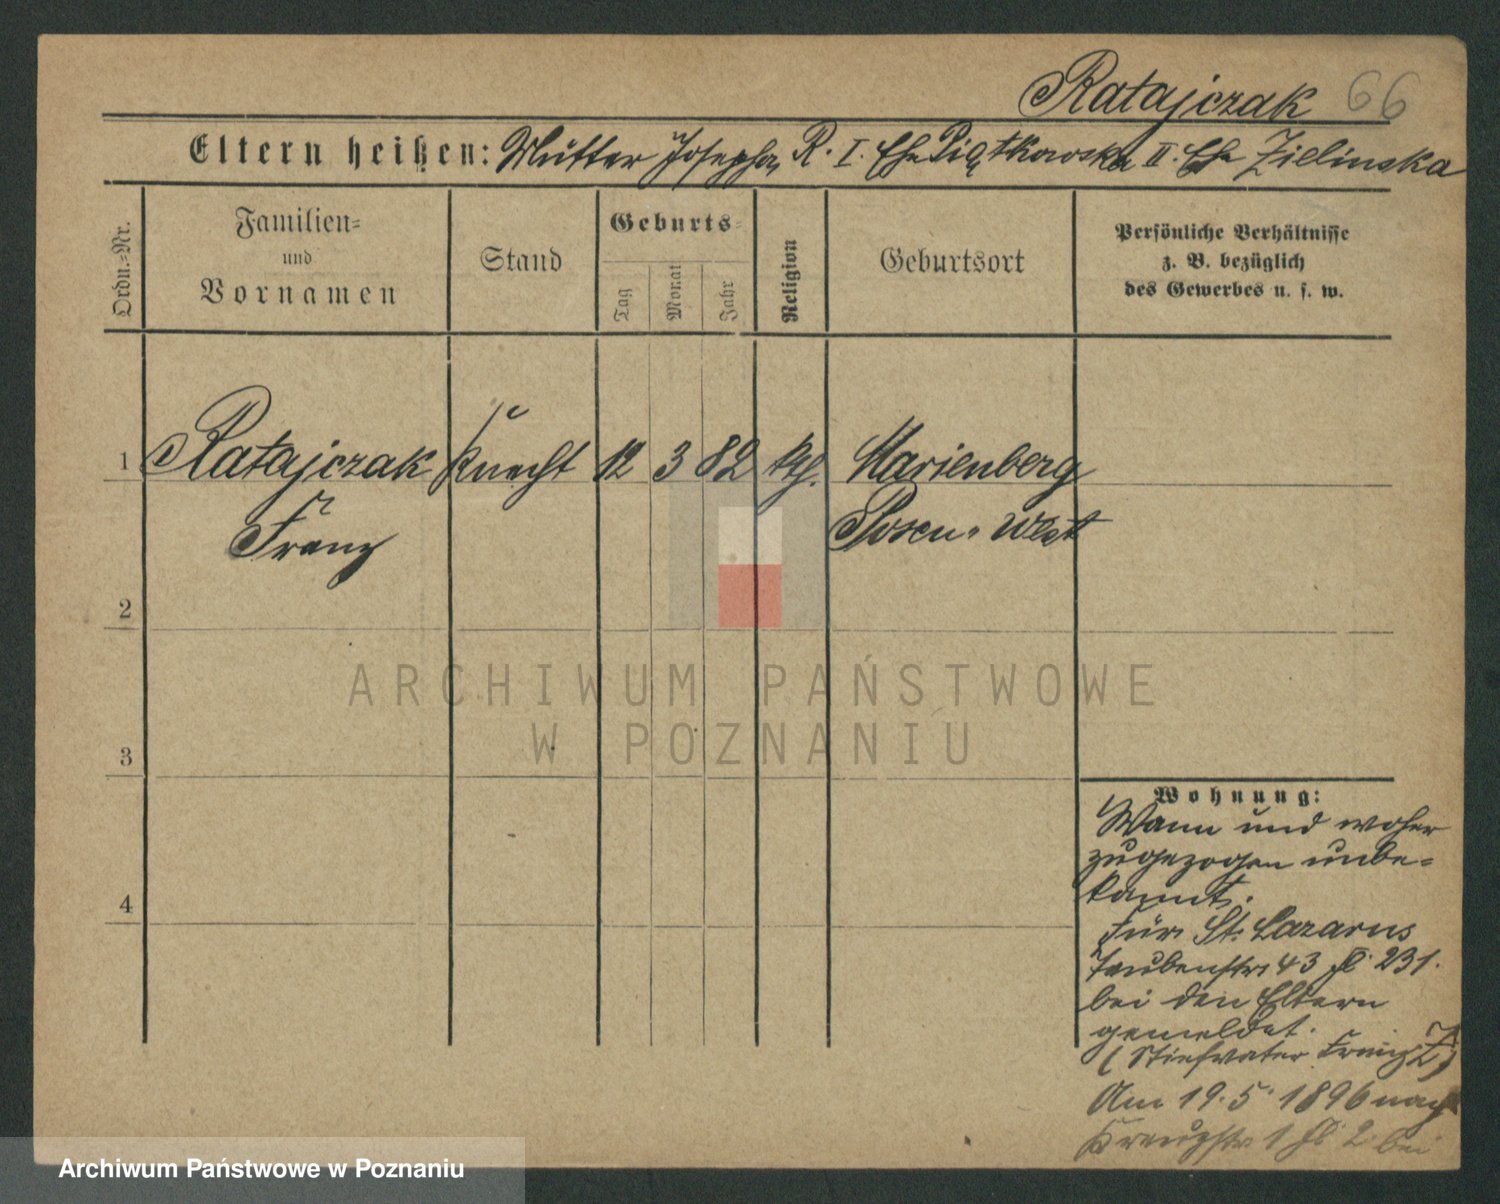 Ratajczak 66
Eltern heißen: Mutter Josepha R. I. Ehe Piątkowska II. Ehe Zielinska
Ordn.-Nr.
Familien-
und
Vornamen
Stand
Geburts-
Tag
Monat
Jahr
Religion
Geburtsort
Persönliche Verhältnisse
z. B. bezüglich
des Gewerbes u. s. w.
1 Ratajczak Knecht 12 3 82 kth. Marienberg
Franz Posen-West
2
3
4
ARCHIWUM PAŃSTWOWE
W POZNANIU
Wohnung:
Wann und woher
zugezogen unbe-
kannt.
Für St. Lazarus
Taubenstr. 43 231.
bei den Eltern
gemeldet.
(Stiefvater Franz Z)
Am 19.5 1896 nach
1 2 bei
Archiwum Państwowe w Poznaniu